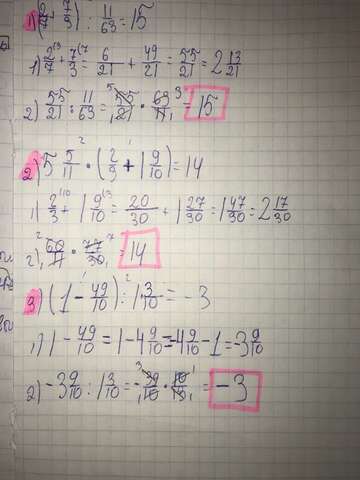 1) (2/7 + 7/3) : 11/63 = 15
1) 2/7 (3 + 7/3 (7 = 6/21 + 49/21 = 55/21 = 2 13/21
2) 55/21 : 11/63 = 55/21 · 63/11 = 15
2) 5 5/11 · (2/3 + 1 9/10) = 14
1) 2/3 (10 + 1 9/10 (3 = 20/30 + 1 27/30 = 1 47/30 = 2 17/30
2) 60/11 · 77/30 = 14
3) (1 - 49/10) : 1 3/10 = -3
1) 1 - 49/10 = 1 - 4 9/10 = -4 9/10 - 1 = -3 9/10
2) -3 9/10 : 1 3/10 = -39/10 · 10/13 = -3